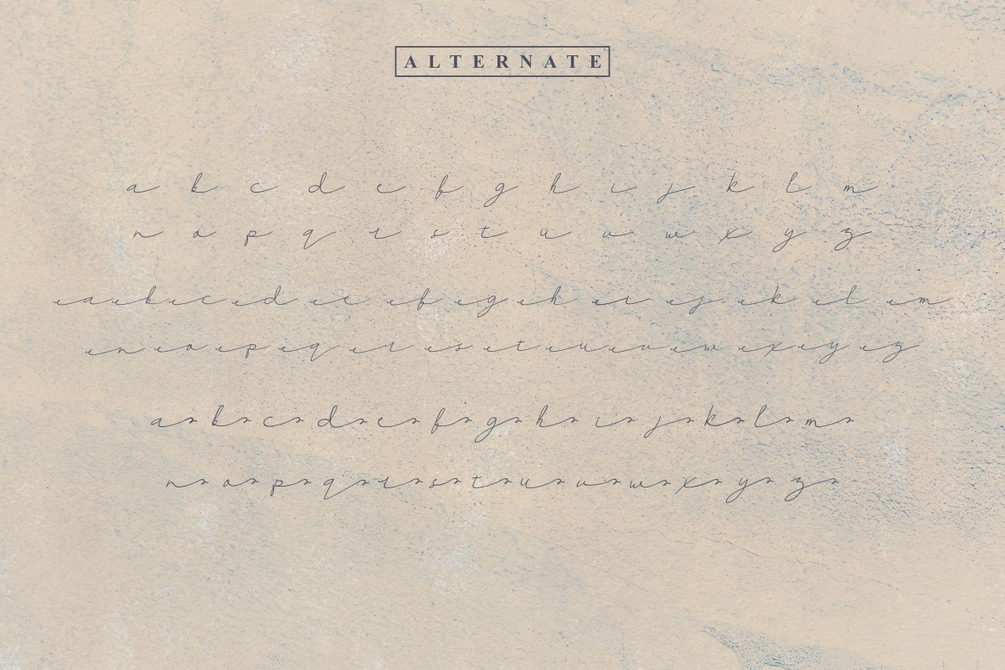 ALTERNATE
a b c d e f g h i j k l m
n o p q r s t u v w x y z
a b c d e f g h i j k l m
n o p q r s t u v w x y z
a b c d e f g h i j k l m
n o p q r s t u v w x y z